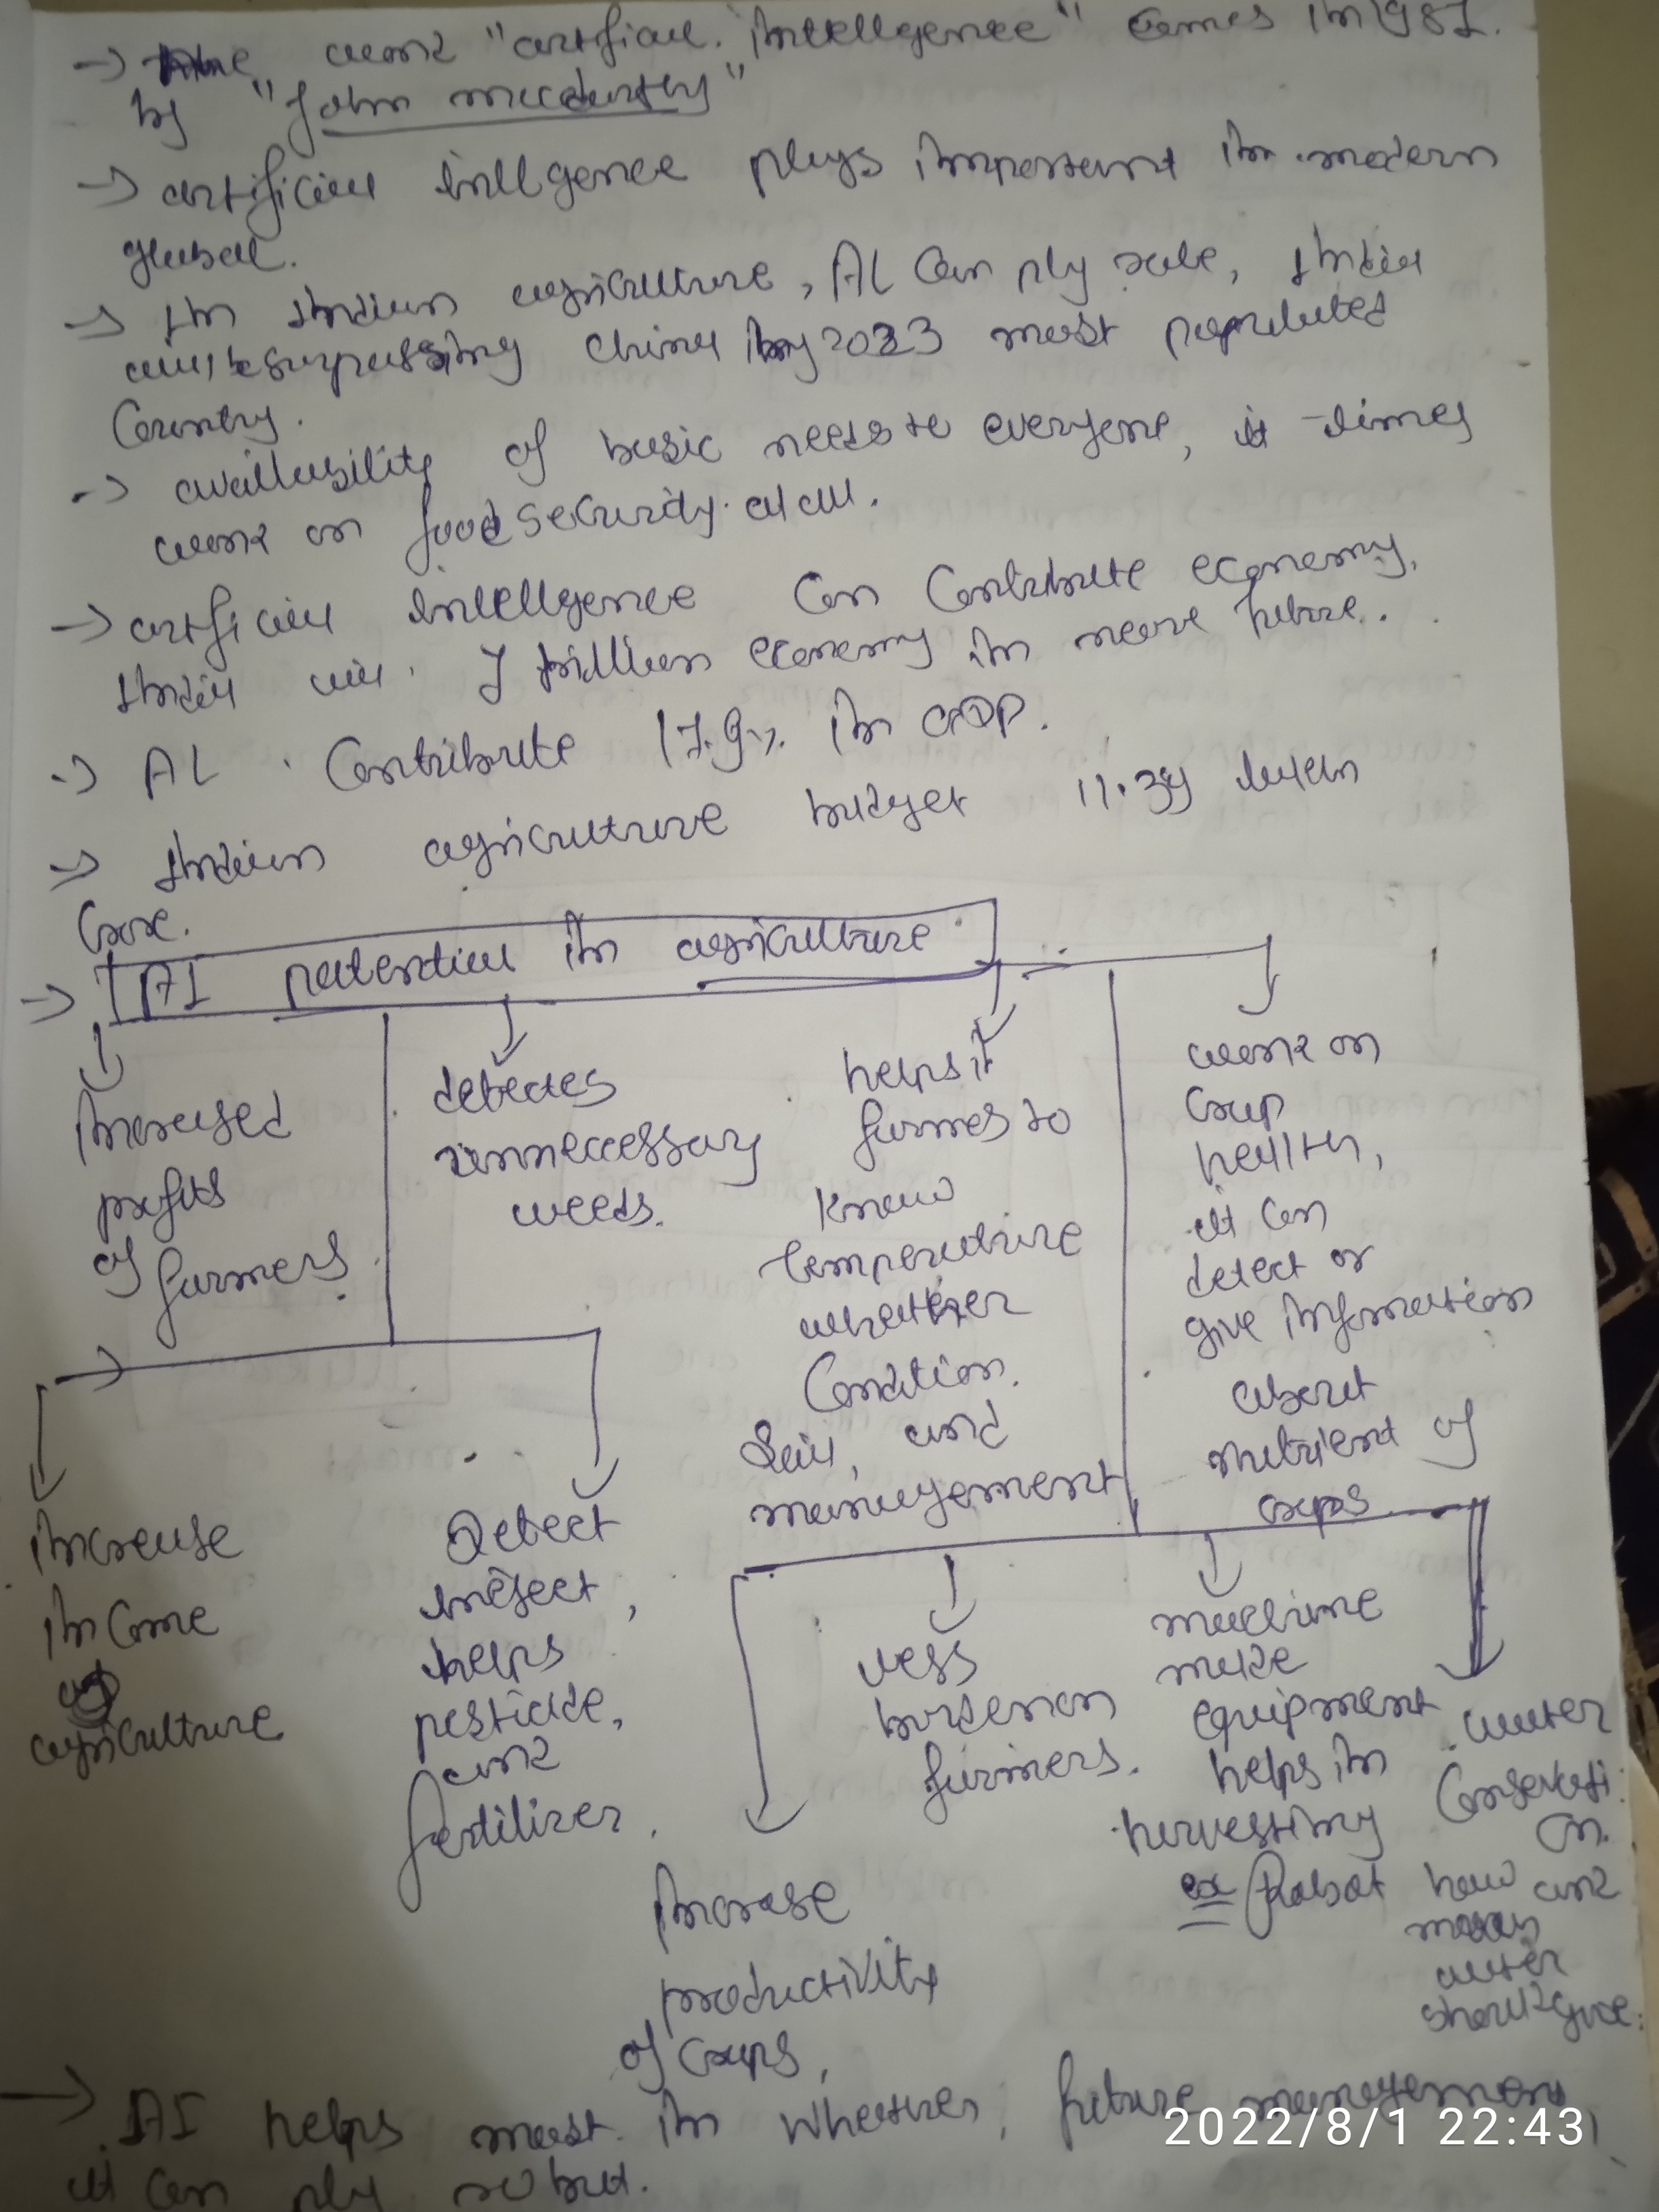 → The work "artificial. intelligence" comes in 1981.
by "John mccdurthy"
→ artificial intllgence plays important in modern
global.
→ In Indian agriculture, AI can ply role, India
will be surpussing china by 2023 most populated
Country.
→ availability of basic needs to everyone, it times
work on food security.
→ artificial intelligence can Contribute economy,
India will trillion economy in near future.
→ AI Contribute 17.9%. in GDP.
→ Indian agriculture budget 11.39
Crore.
→ AI potential in agriculture
Increased
profits
of farmers.
detectes
unneccessary
weeds.
helps it
furmes to
know
temperature
wheather
Condition.
Soil, and
management
work on
crop
health,
it can
detect or
give information
about
nutrient of
crops
increase
income
agriculture
Detect
insect,
helps
pesticide,
and
fertilizer.
Increase
productivity
of crops,
less
burden on
farmers.
machine
made
equipment
helps in
harvesting
ex Robot
water
Conservati
on.
how and
water
should give.
→ AI helps most in wheather, future management,
it can ply robut.
2022/8/1 22:43